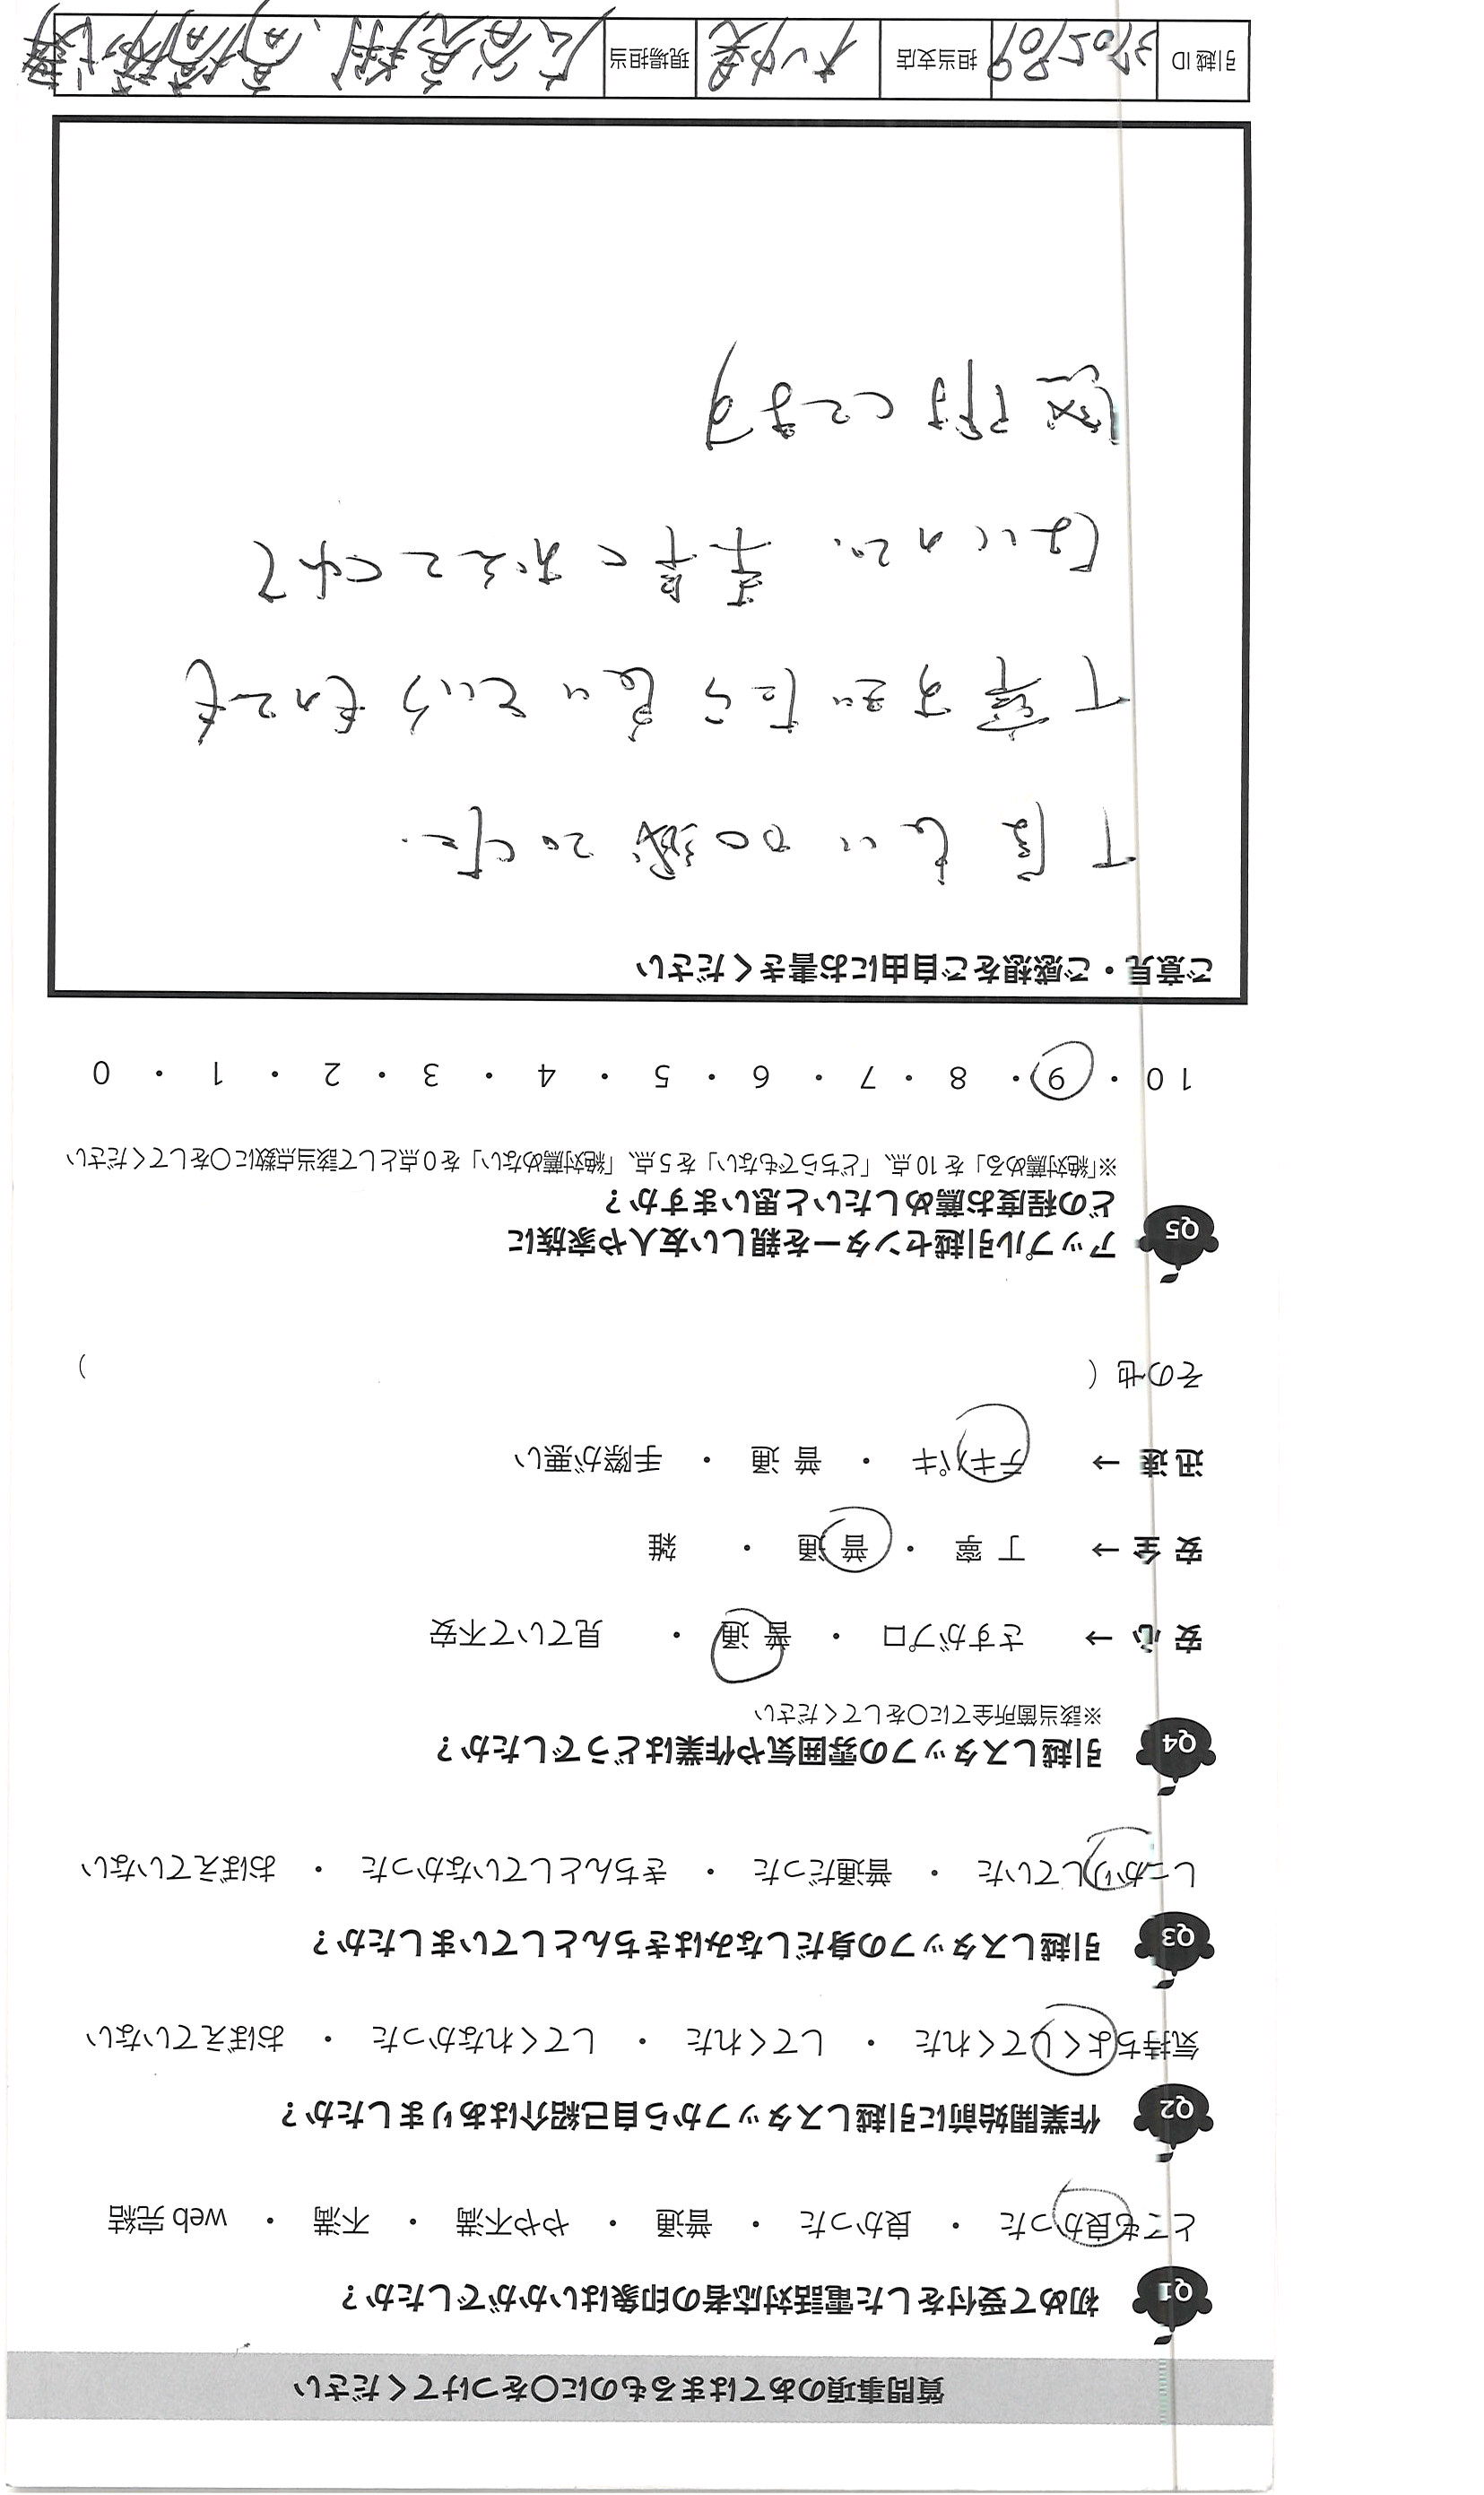 質問事項のあてはまるものに〇をつけてください
Q1 初めて受付をした電話対応者の印象はいかがでしたか？
とても良かった ・ 良かった ・ 普通 ・ やや不満 ・ 不満 ・ web 完結
Q2 作業開始前に引越しスタッフから自己紹介はありましたか？
気持ちよくしてくれた ・ してくれた ・ してくれなかった ・ おぼえていない
Q3 引越しスタッフの身だしなみはきちんとしていましたか？
しっかりしていた ・ 普通だった ・ きちんとしていなかった ・ おぼえていない
Q4 引越しスタッフの雰囲気や作業はどうでしたか？
※該当箇所全てに〇をしてください
安 心 → さすがプロ ・ 普 通 ・ 見ていて不安
安 全 → 丁 寧 ・ 普 通 ・ 雑
迅 速 → テキパキ ・ 普 通 ・ 手際が悪い
その他（ ）
Q5 アップル引越センターを親しい友人や家族に
どの程度お薦めしたいと思いますか？
※「絶対薦める」を 10 点、「どちらでもない」を 5 点、「絶対薦めない」を 0 点として該当点数に〇をしてください
10 ・ 9 ・ 8 ・ 7 ・ 6 ・ 5 ・ 4 ・ 3 ・ 2 ・ 1 ・ 0
ご意見・ご感想をご自由にお書きください
丁度いい加減でした。
丁寧すぎたら良いというものでも
ないので、手早くおえてくれて
感謝してます
引越 ID 3705109 担当支店 現場担当